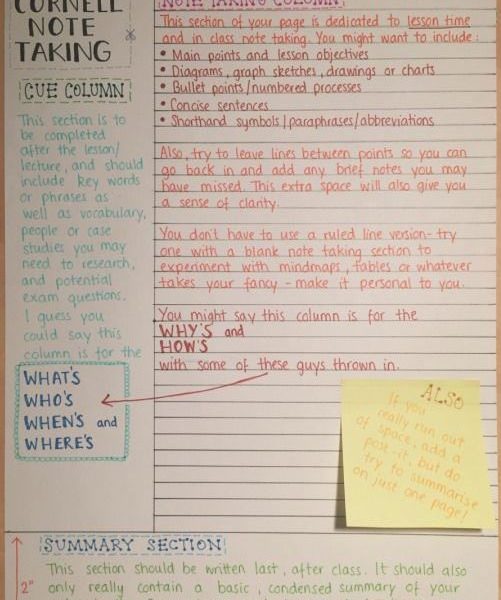 CORNELL
NOTE
TAKING
CUE COLUMN
This section is to
be completed
after the lesson/
lecture, and should
include key words
or phrases as
well as vocabulary,
people or case
studies you may
need to research,
and potential
exam questions.
I guess you
could say this
column is for the
WHAT'S
WHO'S
WHEN'S and
WHERE'S
NOTE TAKING COLUMN
This section of your page is dedicated to lesson time
and in class note taking. You might want to include:
• Main points and lesson objectives
• Diagrams, graph sketches, drawings or charts
• Bullet points/numbered processes
• Concise sentences
• Shorthand symbols/paraphrases/abbreviations
Also, try to leave lines between points so you can
go back in and add any brief notes you may
have missed. This extra space will also give you
a sense of clarity.
You don't have to use a ruled line version- try
one with a blank note taking section to
experiment with mindmaps, tables or whatever
takes your fancy - make it personal to you.
You might say this column is for the
WHY'S and
HOW'S
with some of these guys thrown in.
ALSO
If you
really run out
of space, add a
post-it, but do
try to summarise
on just one page!
SUMMARY SECTION
This section should be written last, after class. It should also
2" only really contain a basic, condensed summary of your